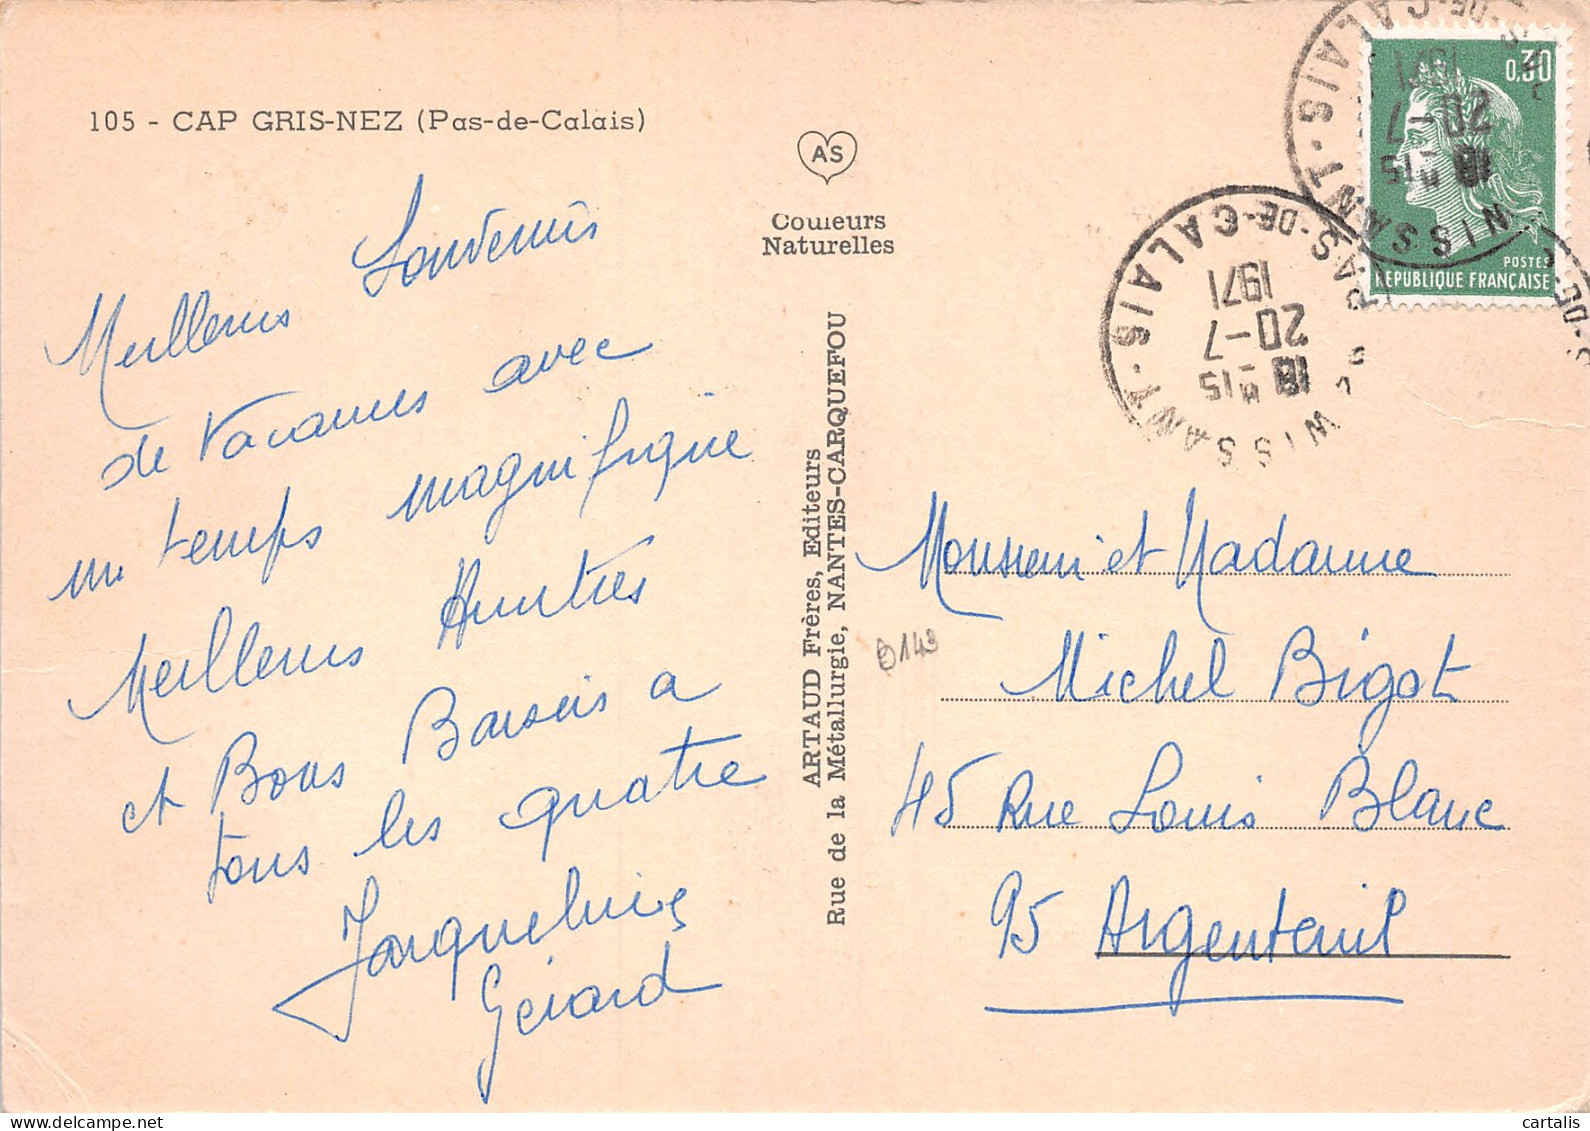 105 - CAP GRIS-NEZ (Pas-de-Calais)
Meilleurs Souvenirs
de Vacances avec
un temps magnifique
Meilleurs
et Bons Baisers a
tous les quatre
Jacqueline
Gérard
AS
Couleurs
Naturelles
ARTAUD Frères, Editeurs
Rue de la Métallurgie, NANTES-CARQUEFOU
0,30
POSTES
REPUBLIQUE FRANÇAISE
WISSANT
PAS-DE-CALAIS
15
20-7
1971
WISSANT
PAS-DE-CALAIS
15
20-7
1971
143
Monsieur et Madame
Michel Bigot
45 Rue Louis Blanc
95 Argenteuil
www.delcampe.net
cartalis